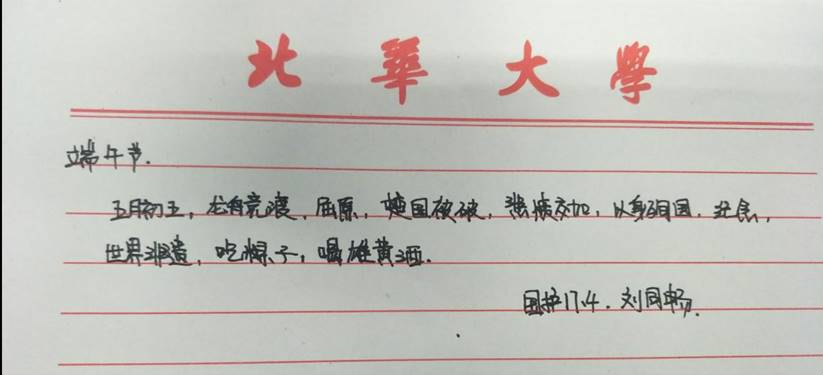 北華大學
端午节.
五月初五，龙舟竞渡，屈原，楚国被破，悲愤交加，以身殉国，
世界非遗，吃粽子，喝雄黄酒.
国护17.4. 刘同畅.